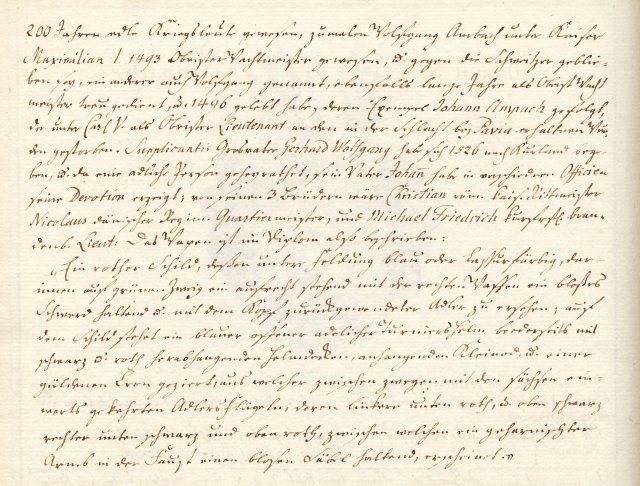 200 Jahren edle Kriegsleute gewesen, zumalen Wolfgang Ambach unter Kaiser
Maximilian I. 1493 Obrister Wachtmeister gewesen, u. gegen die Schweitzer geblie-
ben sey, ein anderer auch Wolfgang genannt, ebenfalls lange Jahre als Obrist Wacht
meister treu gedient, u. 1496 gelebt habe, deren Exempel Johann Ampach gefolgt,
der unter Carl V. als Obrister Lieutenant an den in der Schlacht bey Pavia erhaltenen Wun
den gestorben. Supplicantis Grosvater Gerhard Wolfgang habe sich 1526 nach Kurland bege
ben, u. da eine adliche Person geheyrathet, sein Vater Johan habe in verschiednen Officien
seine Devotion erzeigt, von seinen 3 Brüdern wäre Christian röm. Kais. Rittmeister
Nicolaus dänischer Regim. Quartiermeister, und Michael Friedrich kurfrstl. bran-
denb. Lieut: Das Wapen ist im Diplom also beschrieben:
„Ein rother Schild, dessen untere Feldung blau oder Lassurfärbig, dar-
innen auf grünem Zweig ein aufrecht stehend mit der rechten Waffen ein bloses
Schwerd haltend u. mit dem Kopf zurückgewendeter Adler zu ersehen; auf
dem Schild stehet ein blauer offener adelicher Turniershelm beederseits mit
schwarz u. roth herabhangenden Helmdecken, anhangenden Kleinod, u. einer
güldenen Cron geziert, aus welcher zwischen zweyen mit den Sächsen ein-
werts gekehrten Adlersflügeln, deren linkere unten roth, u. oben schwarz
rechter unten schwarz und oben roth, zwischen welchen ein geharnischter
Arm in der Faust einen blosen Säbel haltend, erscheinet."